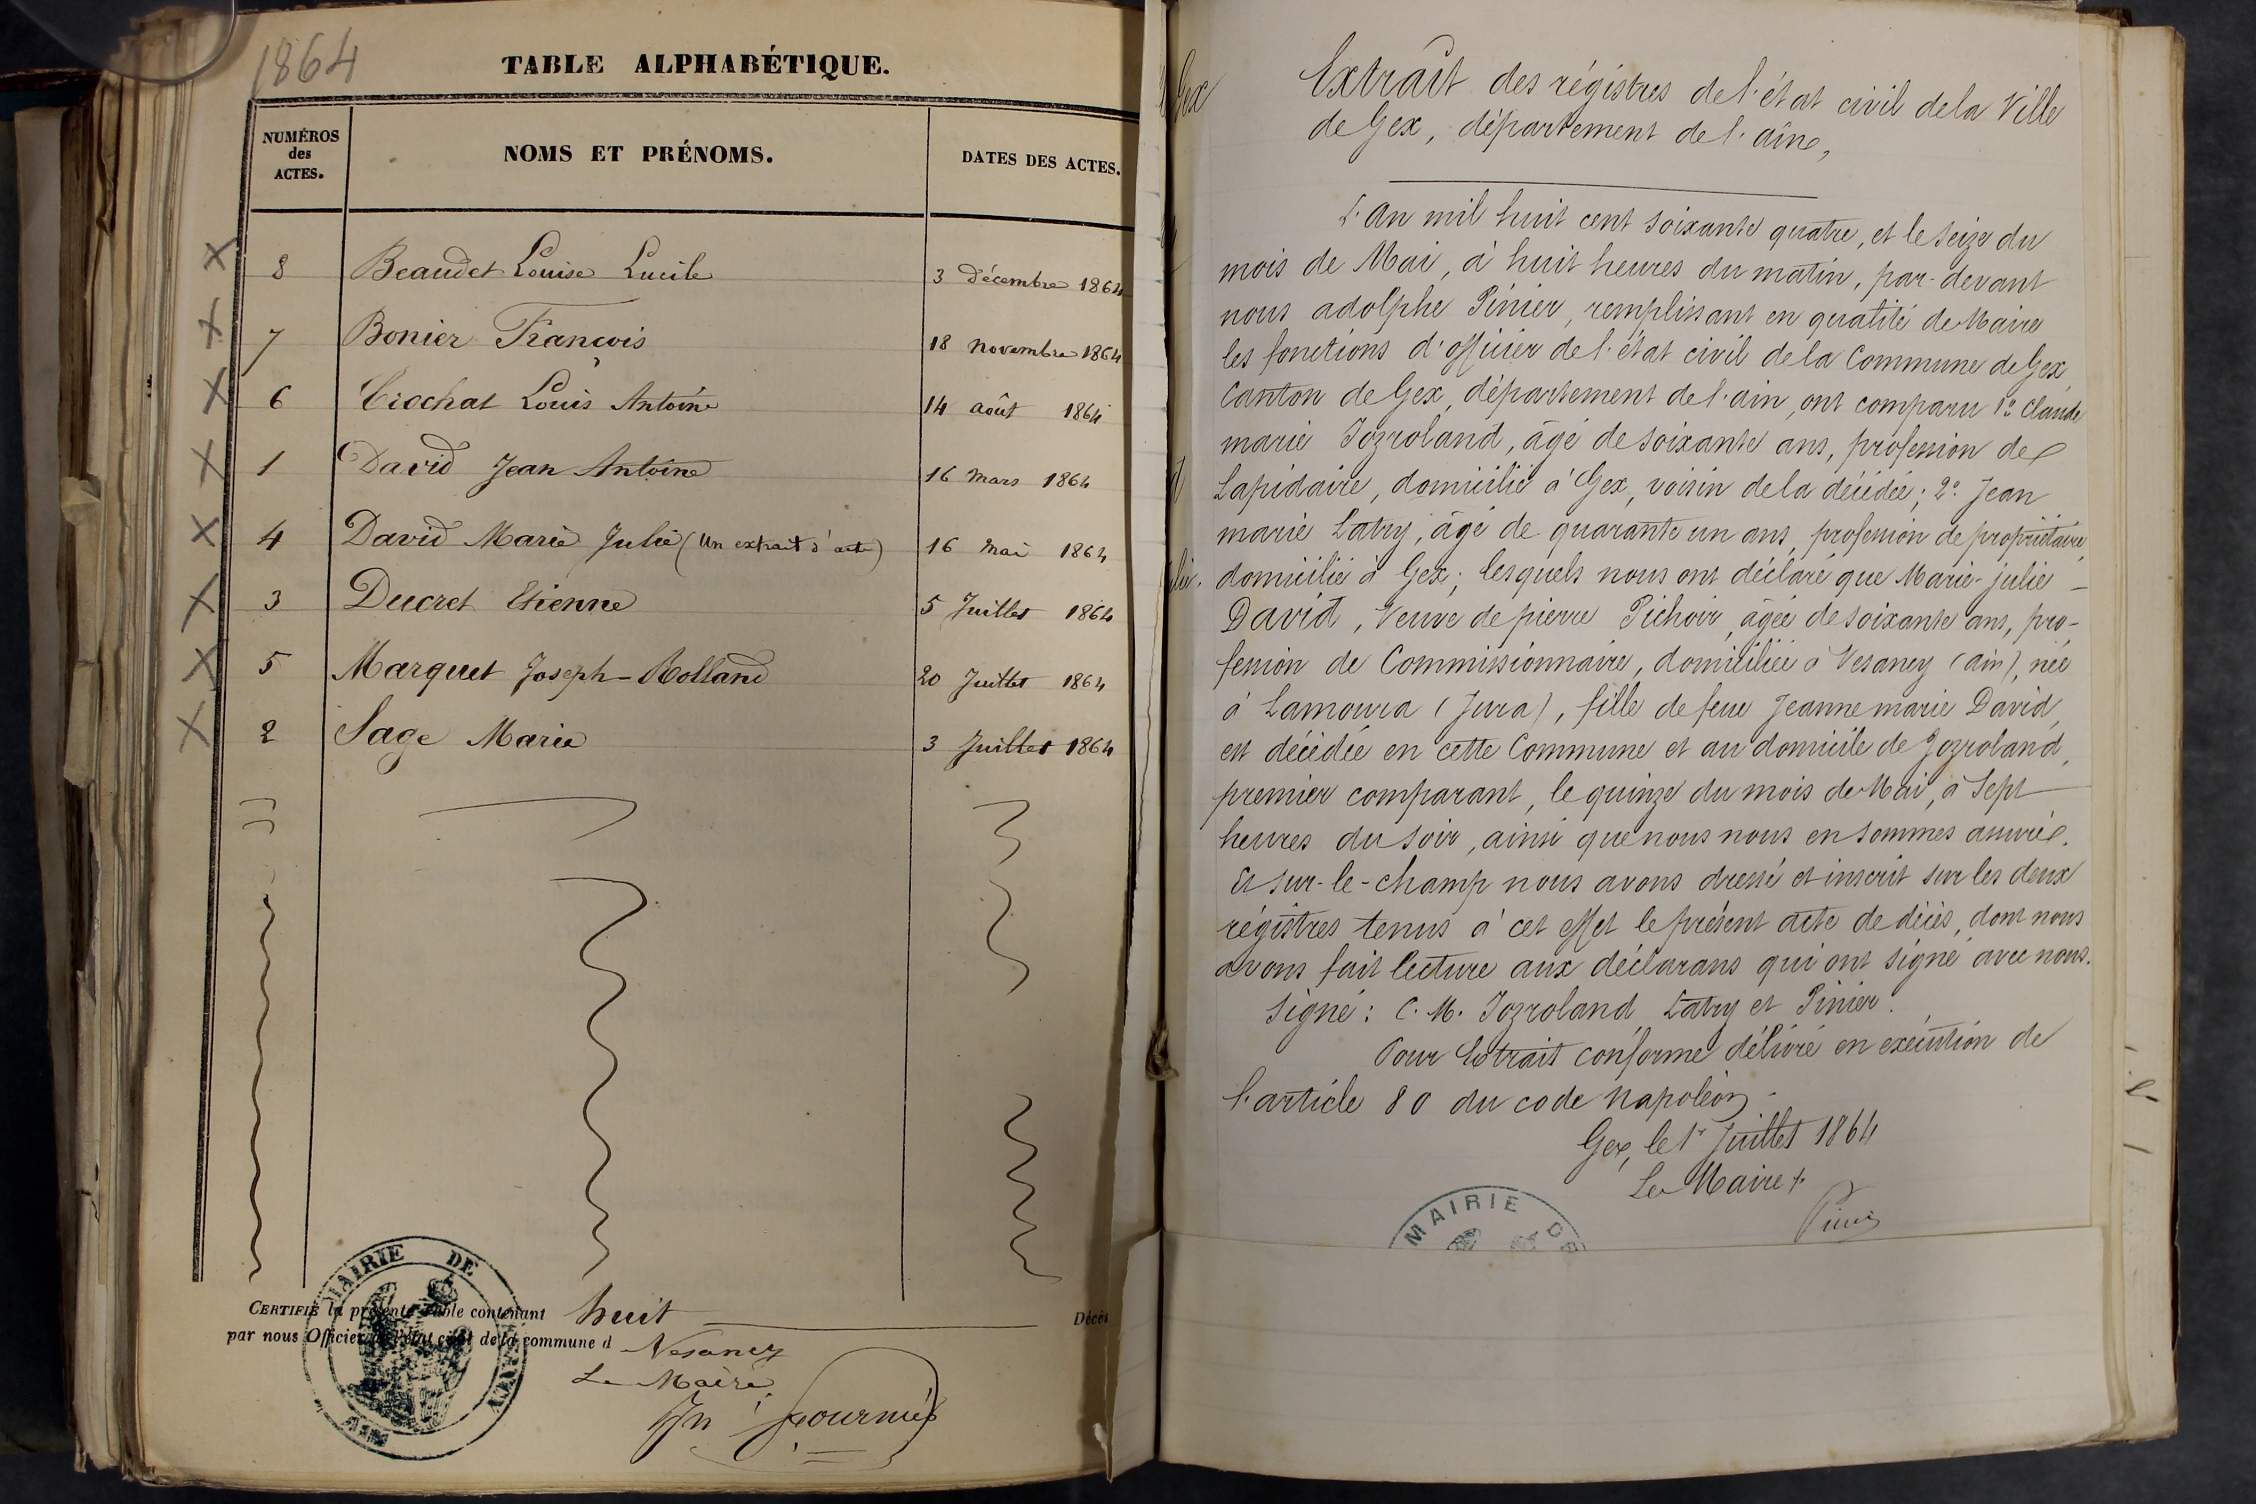 1864
TABLE ALPHABÉTIQUE.
NUMÉROS des ACTES.
NOMS ET PRÉNOMS.
DATES DES ACTES.
8 Beaudet Louise Lucile 3 Décembre 1864
7 Bonier François 18 novembre 1864
6 Crochat Louis Antoine 14 août 1864
1 David Jean Antoine 16 Mars 1864
4 David Marie Julie (Un extrait d'acte) 16 Mai 1864
3 Ducret Etienne 5 Juillet 1864
5 Marquet Joseph-Rolland 20 Juillet 1864
2 Sage Marie 3 Juillet 1864
CERTIFIÉ la présente Table contenant huit Décès
par nous Officier de l'état civil de la commune d Vesancy
Le Maire
Fournier
MAIRIE DE VESANCY
Gex
Extrait des régistres de l'état civil de la Ville
de Gex, département de l'aîne,
L'an mil huit cent soixante quatre, et le seize du
mois de Mai, à huit heures du matin, par-devant
nous adolphe Pinier, remplissant en qualité de Maire
les fonctions d'officier de l'état civil de la Commune de Gex,
Canton de Gex, département de l'ain, ont comparu 1º Claude
marie Jozroland, âgé de soixante ans, profession de
Lapidaire, domicilié à Gex, voisin de la décédée; 2º Jean
marie Latry, âgé de quarante un ans, profession de propriétaire,
domicilié à Gex; lesquels nous ont déclaré que Marie-julie
David, Veuve de pierre Pichoir, âgée de soixante ans, pro-
fession de Commissionnaire, domiciliée à Vesancy (ain), née
à Lamoura (Jura), fille de feue Jeanne marie David,
est décédée en cette Commune et au domicile de Jozroland,
premier comparant, le quinze du mois de Mai, à Sept
heures du soir, ainsi que nous nous en sommes assurés.
Et sur-le-champ nous avons dressé et inscrit sur les deux
régistres tenus à cet effet le présent acte de décès, dont nous
avons fait lecture aux déclarans qui ont signé avec nous.
Signé: C. M. Jozroland Latry et Pinier.
Pour Extrait conforme délivré en exécution de
l'article 80 du code Napoléon.
Gex, le 1r Juillet 1864
Le Maire
Pinier
MAIRIE DE